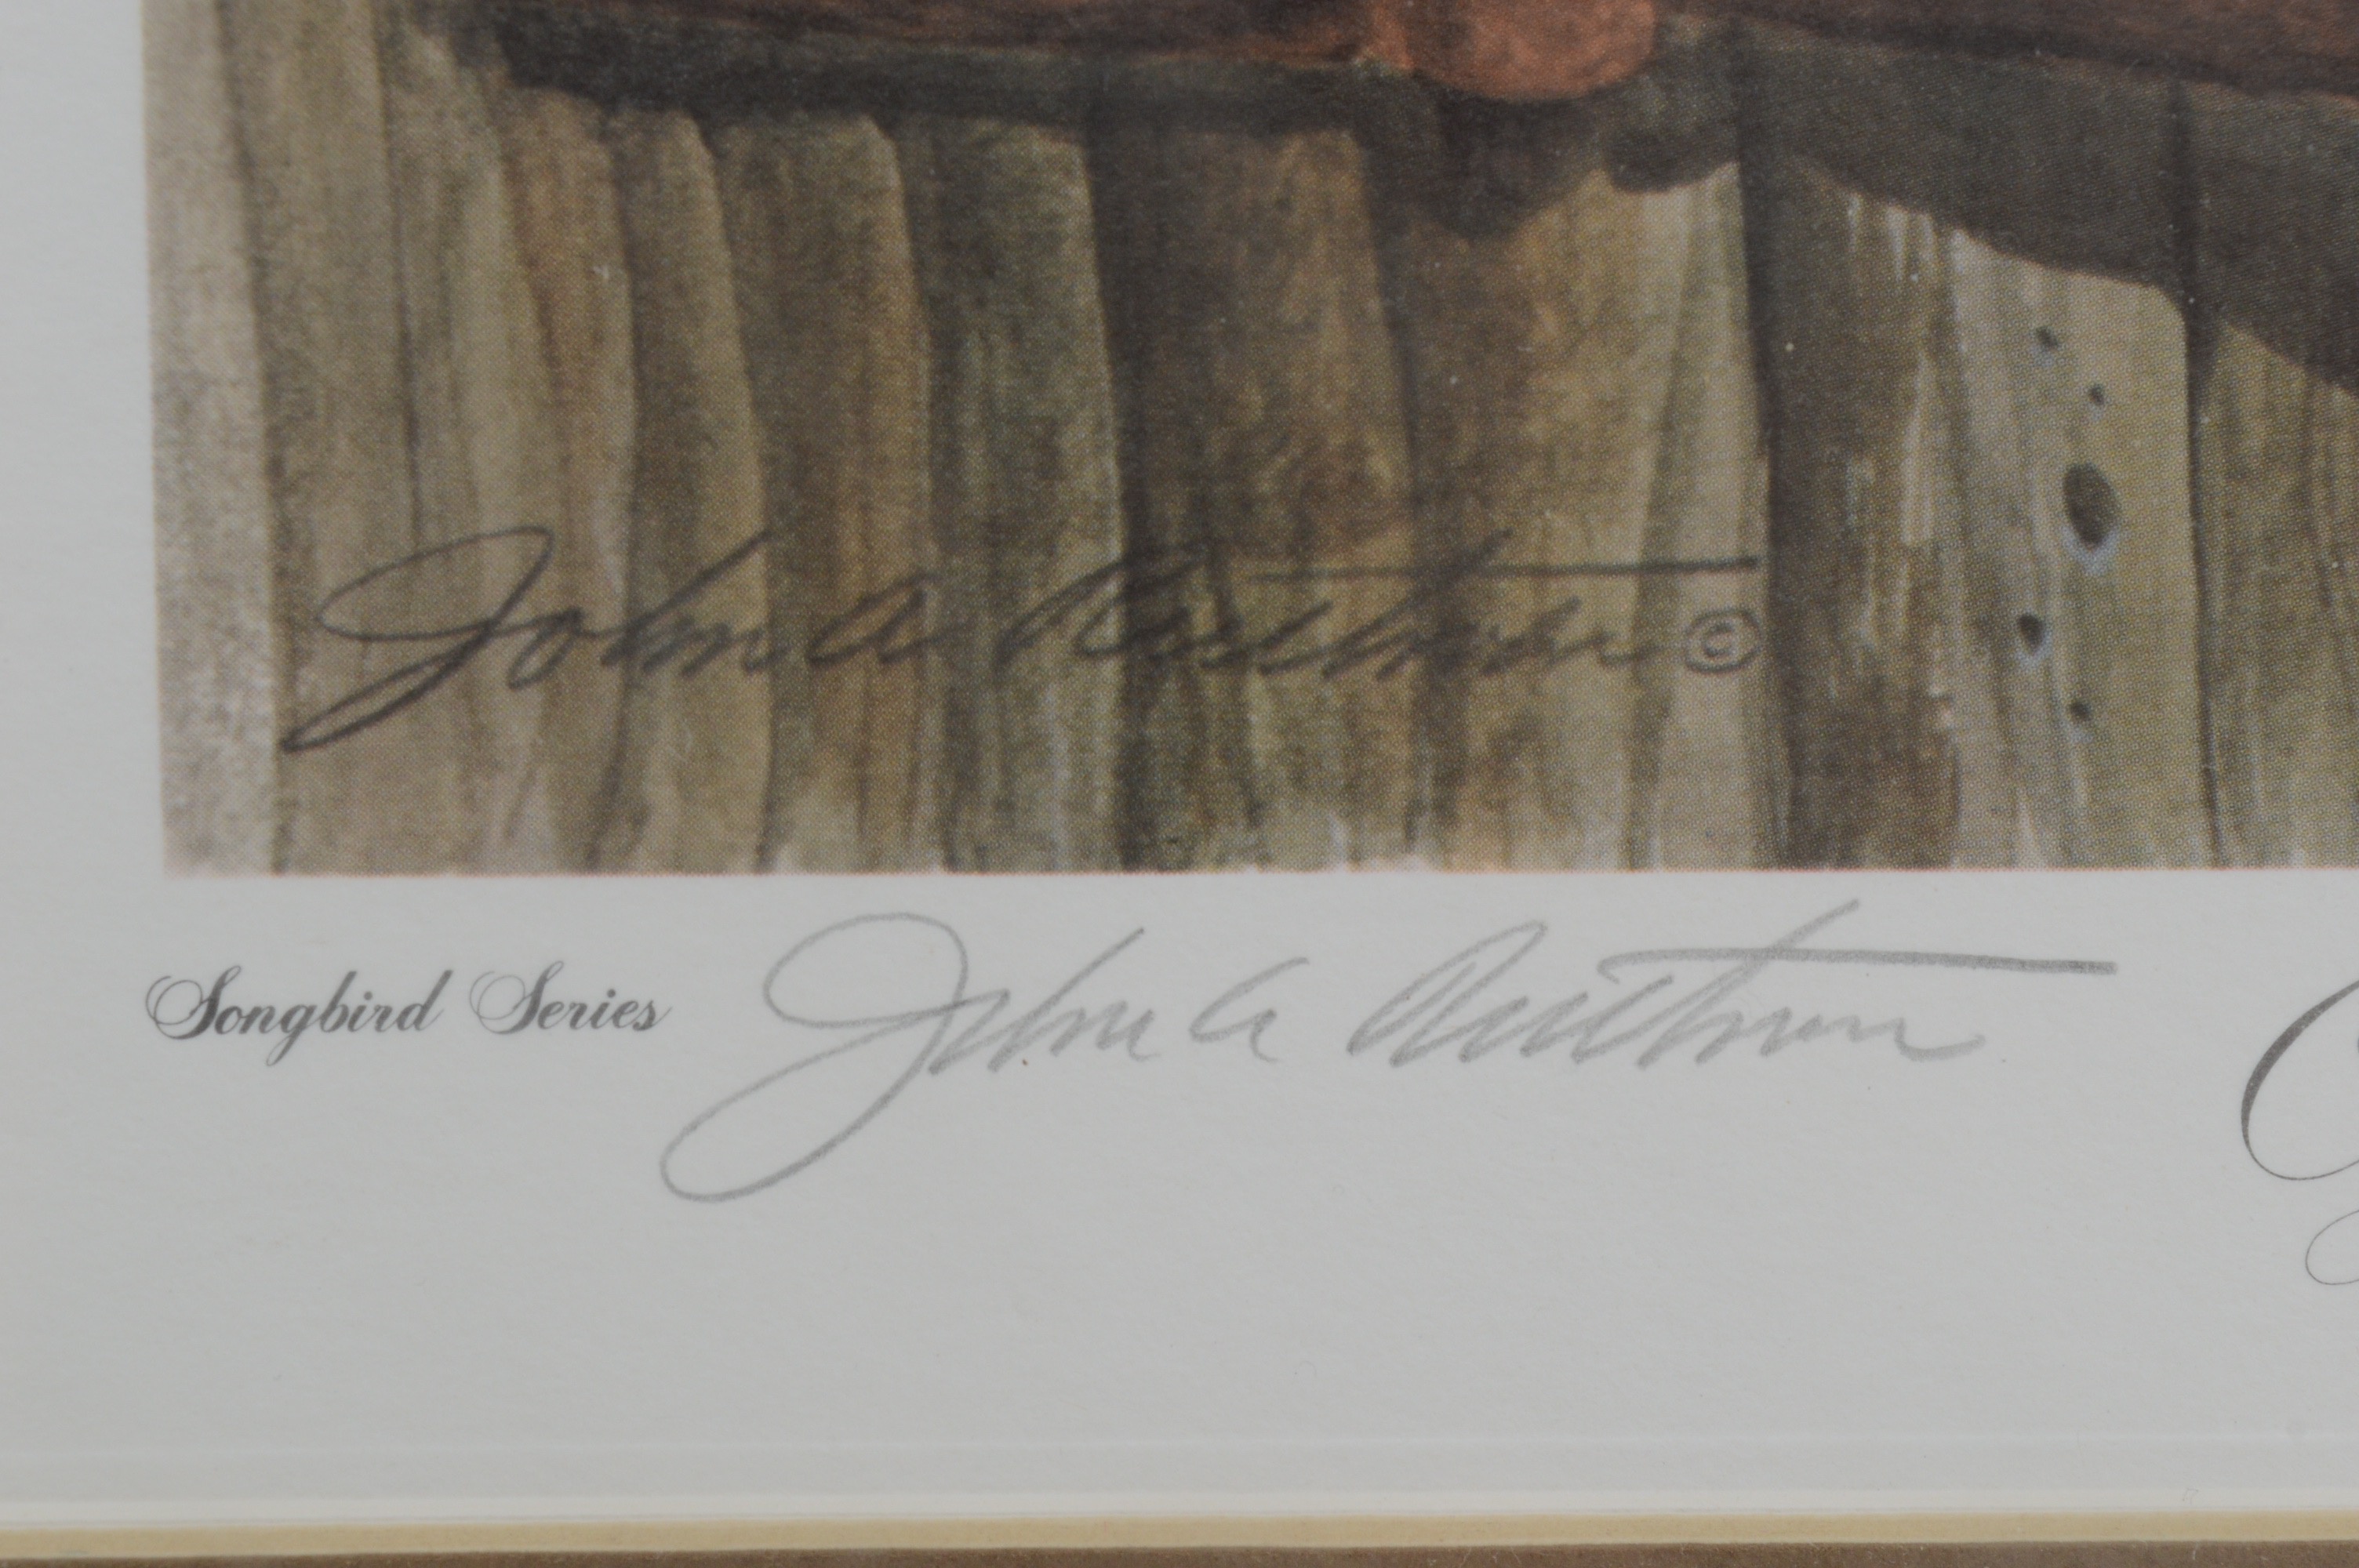 John A Ruthven ©
Songbird Series John A Ruthven